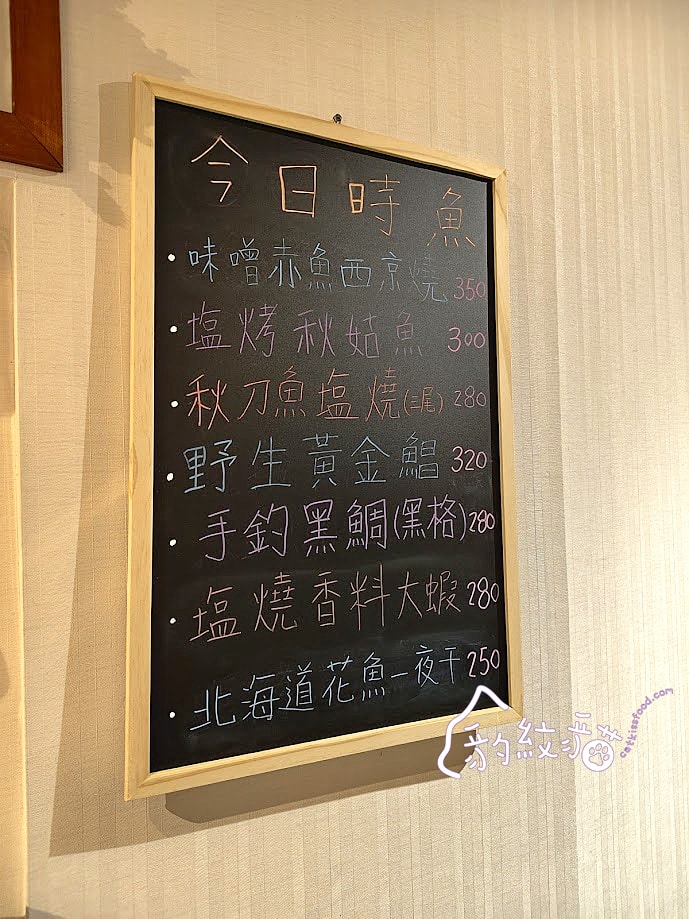 今日時魚
・味噌赤魚西京燒 350
・塩烤秋姑魚 300
・秋刀魚塩燒(二尾) 280
・野生黃金鯧 320
・手釣黑鯛(黑格) 280
・塩燒香料大蝦 280
・北海道花魚一夜干 250
豹紋貓
catkissfood.com